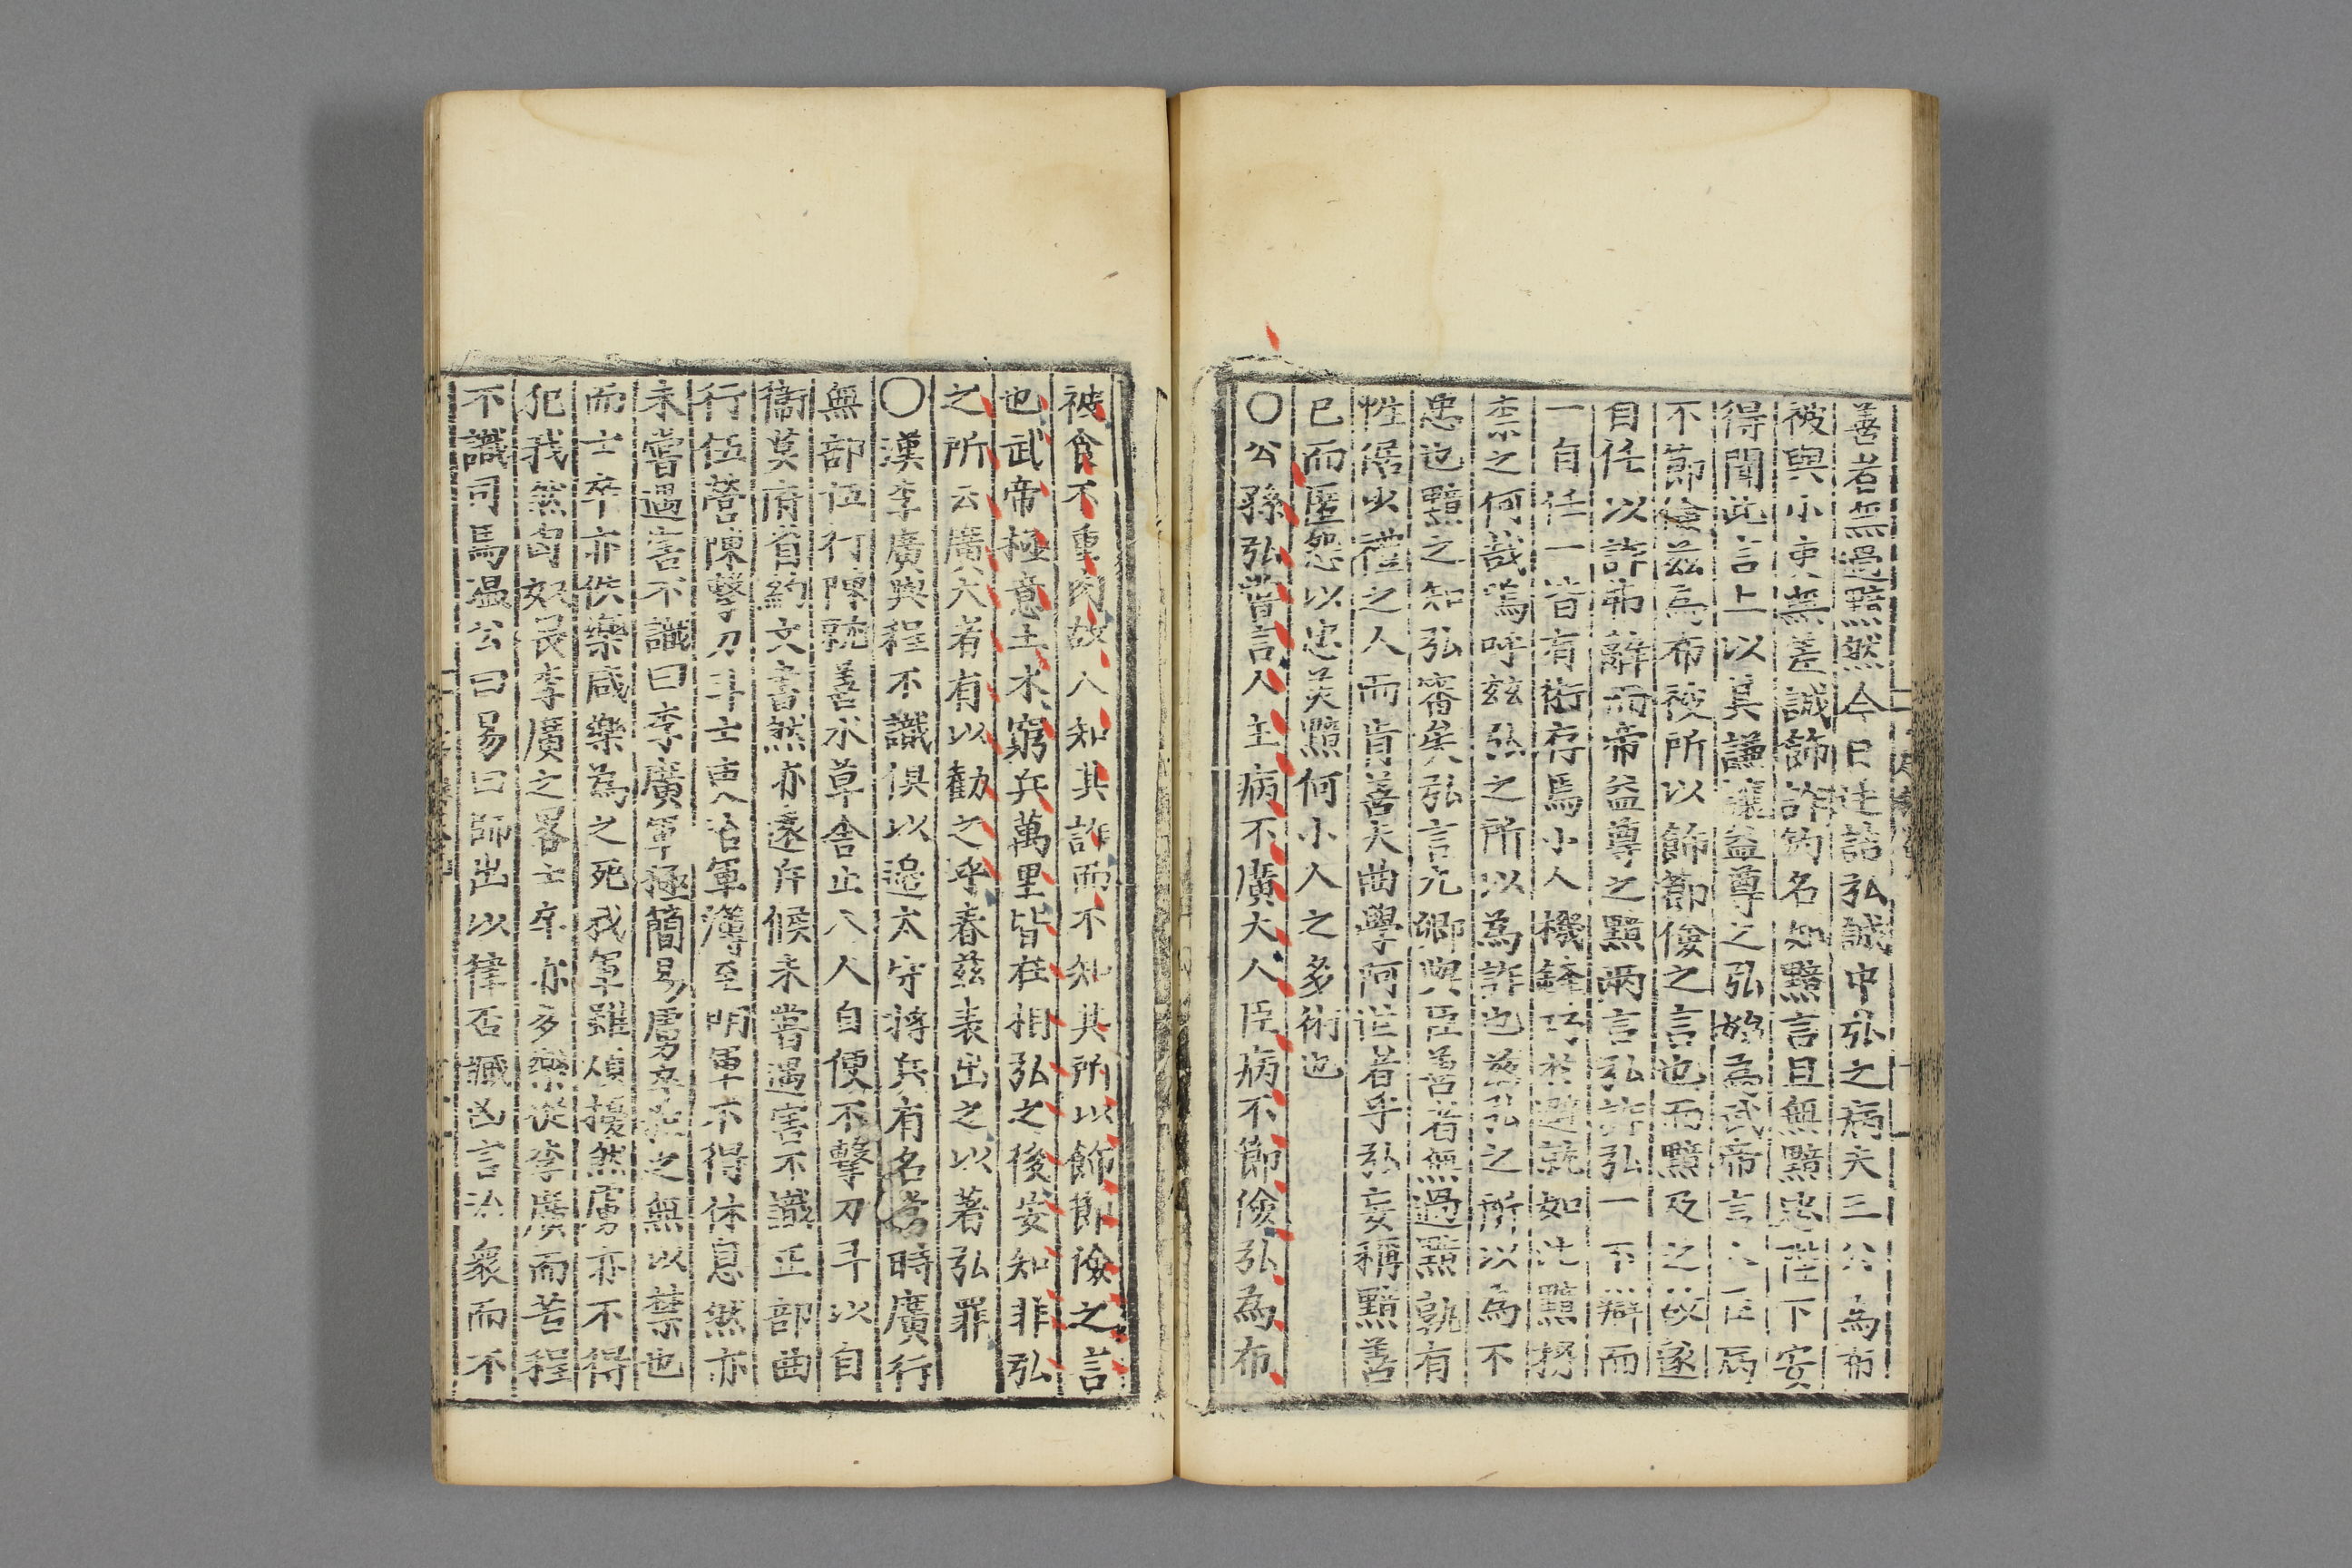 善者無過黯然今日廷詰弘誠中弘之病夫三公為布
被與小吏無差誠飾詐釣名如黯言且無黯忠陛下安
得聞此言上以其謙讓益尊之弘始為武帝言人臣病
不節儉茲為布被所以飾節儉之言也而黯及之故遂
自任以詐而辭而帝益尊之黯兩言弘詐弘一不辯而
一自任一皆有術存焉小人機鋒巧於避就如此黯拐
柰之何哉嗚呼茲弘之所以為詐也茲弘之所以為不
患也黯之知弘審矣弘言九卿與臣善者無過黯孰有
性倨少禮之人而肯善夫曲學阿世者乎弘妄稱黯善
已而匿怨以忠美黯何小人之多術也
〇公孫弘嘗言人主病不廣大人臣病不節儉弘為布
被食不重肉故人知其詐而不知其所以飾節儉之言
也武帝極意土木窮兵萬里皆在相弘之後安知非弘
之所云廣大者有以勸之乎春茲表出之以著弘罪
〇漢李廣與程不識俱以邊太守將兵有名當時廣行
無部伍行陳就善水草舍止人人自便不擊刀斗以自
衞莫府省約文書然亦遠斥候未嘗遇害不識正部曲
行伍營陳擊刀斗士吏治軍簿至明軍不得休息然亦
未嘗遇害不識曰李廣軍極簡易虜卒犯之無以禁也
而士卒亦佚樂咸樂為之死我軍雖煩擾然虜亦不得
犯我然匈奴畏李廣之畧士卒亦多樂從李廣而苦程
不識司馬温公曰易曰師出以律否臧凶言治衆而不